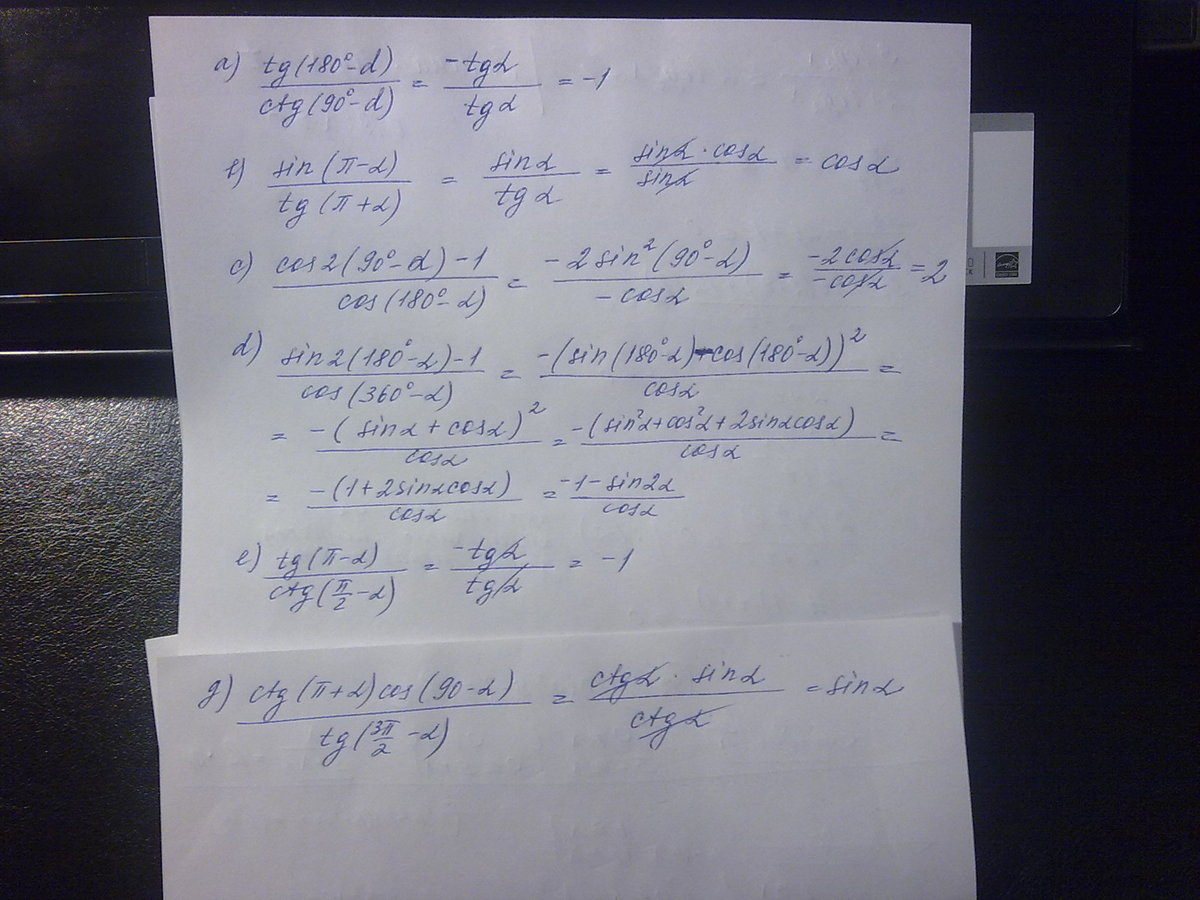 a) tg(180°-α)/ctg(90°-α) = -tgα/tgα = -1
b) sin(π-α)/tg(π+α) = sinα/tgα = sinα·cosα/sinα = cosα
c) cos2(90°-α)-1/cos(180°-α) = -2sin²(90°-α)/-cosα = -2cosα/-cosα = 2
d) sin2(180°-α)-1/cos(360°-α) = -(sin(180°-α)-cos(180°-α))²/cosα =
= -(sinα+cosα)²/cosα = -(sin²α+cos²α+2sinαcosα)/cosα =
= -(1+2sinαcosα)/cosα = -1-sin2α/cosα
e) tg(π-α)/ctg(π/2-α) = -tgα/tgα = -1
g) ctg(π+α)cos(90-α)/tg(3π/2-α) = ctgα·sinα/ctgα = sinα